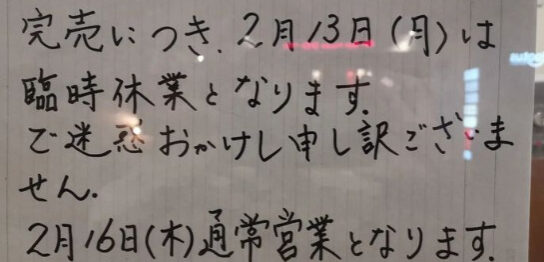 完売につき、2月13日(月)は
臨時休業となります。
ご迷惑おかけし申し訳ございま
せん。
2月16日(木)通常営業となります。